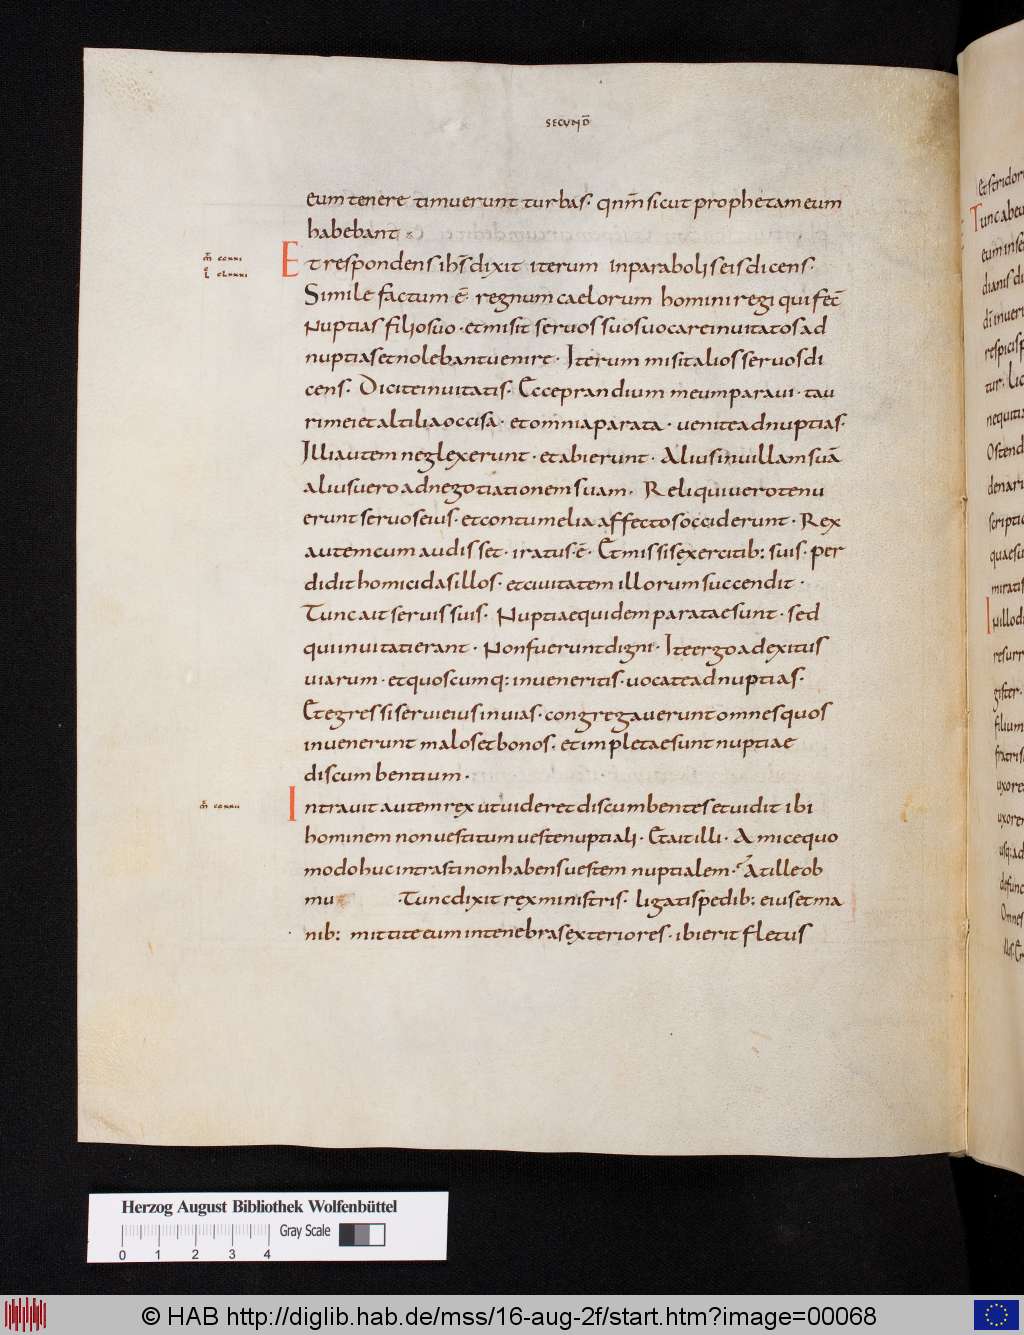 SECUND̄
eum tenere timuerunt turbas· qnm̄ sicut prophetam eum
habebant
m̄ ccxxi
Et respondens ihs̄ dixit iterum inparabolis eis dicens·
l̄ clxxxi
Simile factum ē· regnum caelorum homini regi qui fec̄
Nuptias filio suo· et misit seruos suos uocare inuitatos ad
nuptias et nolebant uenire· Iterum misit alios seruos di
cens· Dicite inuitatis· Ecce prandium meum paraui· tau
ri mei et altilia occisa· et omnia parata· uenite ad nuptias·
Illi autem neglexerunt· et abierunt· Alius in uillam suā
alius uero ad negotiationem suam· Reliqui uero tenu
erunt seruos eius· et contumelia affectos occiderunt· Rex
autem cum audisset· iratus ē· Et missis exercitib: suis· per
didit homicidas illos· et ciuitatem illorum succendit·
Tunc ait seruis suis· Nuptiae quidem paratae sunt· sed
qui inuitati erant· Non fuerunt digni· Ite ergo ad exitus
uiarum· et quoscumq: inueneritis· uocate ad nuptias·
Et egressi serui eius in uias· congregauerunt omnes quos
inuenerunt malos et bonos· et impletae sunt nuptiae
discumbentium·
m̄ ccxxii
Intrauit autem rex ut uideret discumbentes et uidit ibi
hominem non uestitum ueste nuptiali· Et ait illi· Amice quo
modo huc intrasti non habens uestem nuptialem· At ille ob
mu ·Tunc dixit rex ministris· ligatis pedib: eius et ma
nib: mittite eum in tenebras exteriores· ibi erit fletus
Et stridor
Tunc abeu
eum inse
dianis di
dī inueri
respicis p
tur· Lic
nequitia
Ostend
denari
scriptio
quae su
mirati s
In illo di
resurr
gister·
filium
fratris
uxore
uxorem
usq: ad
defunc
Omnes
Herzog August Bibliothek Wolfenbüttel
Gray Scale
0 1 2 3 4
© HAB http://diglib.hab.de/mss/16-aug-2f/start.htm?image=00068